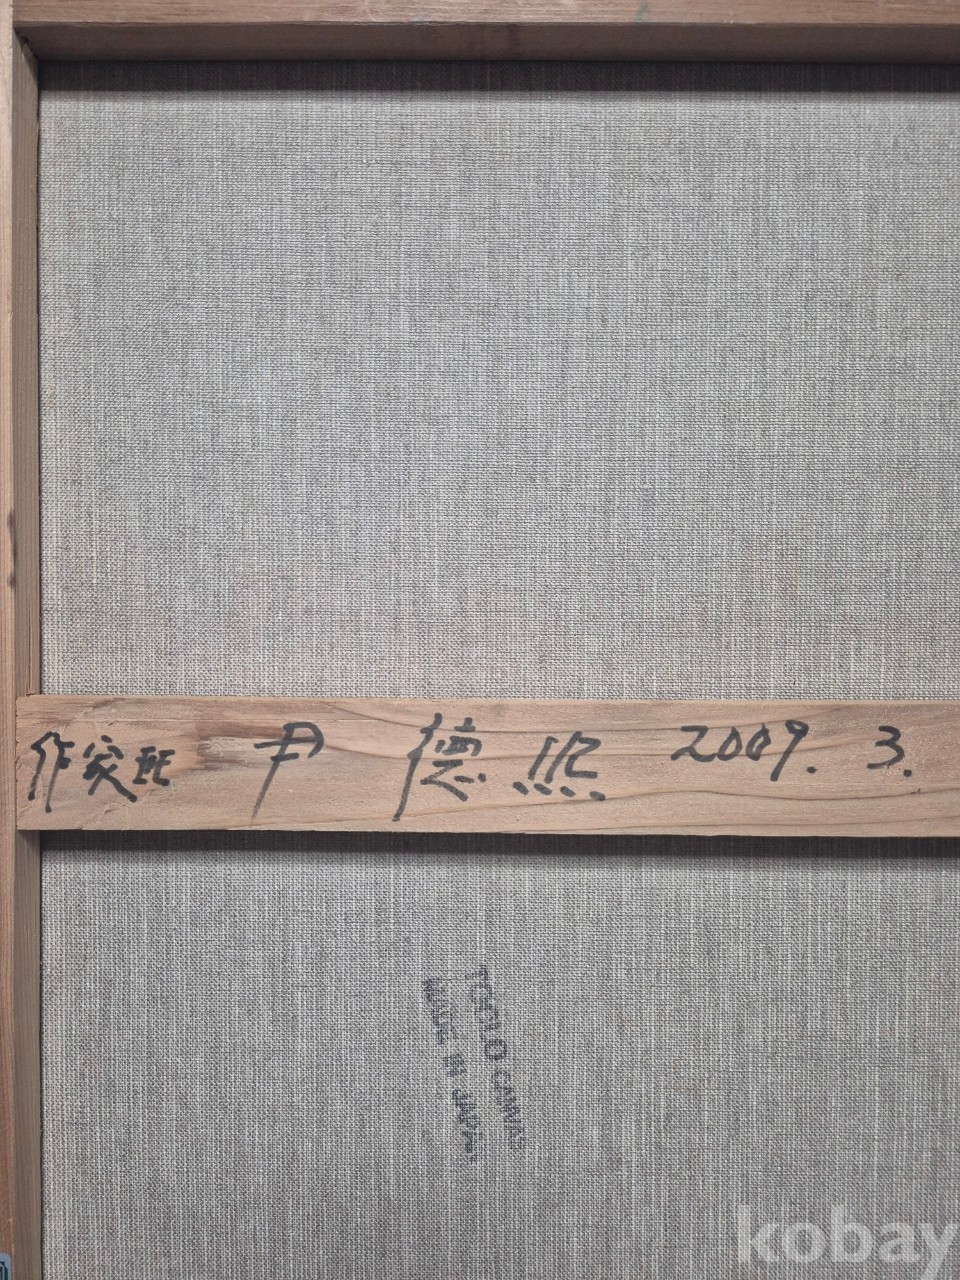 作家 尹 德熙 2009. 3.
TOKLO CANVAS
MADE IN JAPAN
kobay